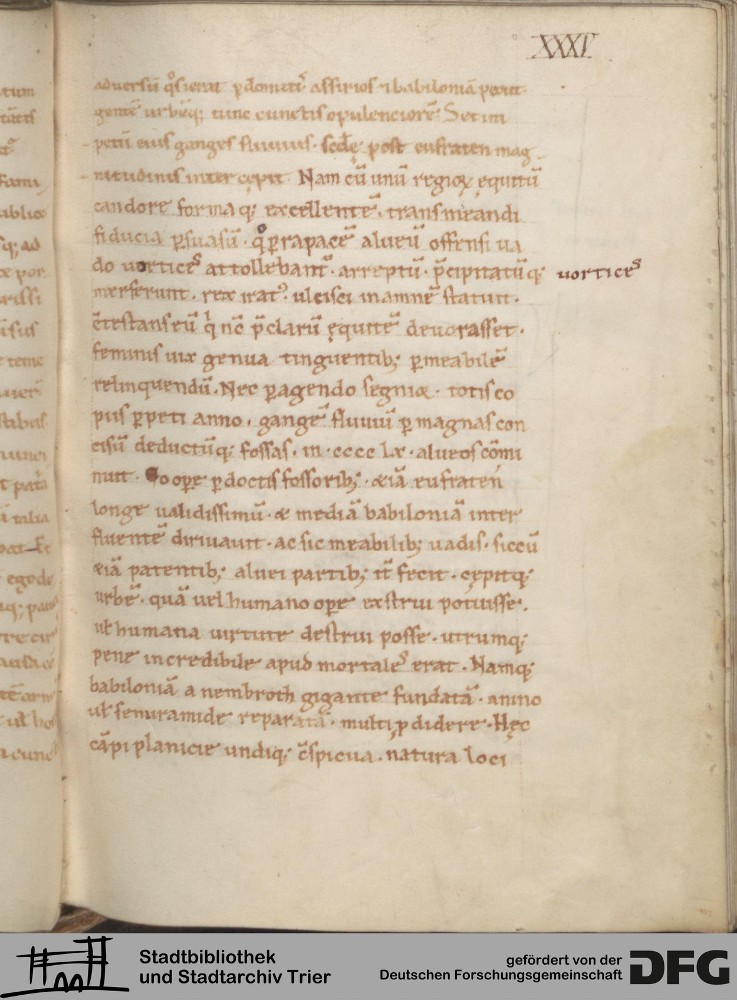 XXXV
adversū q̊s ierat ꝑdomitis assirios ⁊ babiloniā petit
gentē urbēq; tunc cunctis opulenciorē. Set im
petū eius ganges fluuius. scd̄ę post eufraten mag
nitudinis intercępit. Nam cū unū regiorꝝ equitū
candore formaq; excellentē. transmeandi
fiducia ꝑsuasū. q̊ ꝑ rapacē alueū offensi ua
do uortices attollebant̃. arreptū. p̄cipitatūq; uortices
merserunt. rex irat⁹ ulcisci in amnē statuit.
c̄testans eū q̇ nc̄ p̄clarū ęquitē deuorasset.
feminis uix genua tinguentib; ꝑmeabilē
relinquendū. Nec ꝑagendo segnior. totis co
piis ꝑpeti anno. gangē fluuiū ꝑ magnas con
cisū deductūq; fossas. in. cccc lx. alueos cōmi
nuit. Eo oꝑe ꝑdoctis fossorib; &iā eufraten
longe ualidissimū. & mediā babiloniā inter
fluentē diriuauit. ac sic meabilib; uadis. siccū
&iā patentib; aluei partib; it̄ fecit. cępitq;
urbē. quā uel humano oꝑe exstrui potuisse.
uł humana uirtute destrui posse. utrumq;
pene incredibile apud mortales erat. Namq;
babiloniā a nembroth gigante fundatā. a nino
uł semiramide reparatā. multi ꝓdidere. Hęc
cāpi planicie undiq; c̄spicua. natura loci
Stadtbibliothek
und Stadtarchiv Trier
gefördert von der
Deutschen Forschungsgemeinschaft
DFG